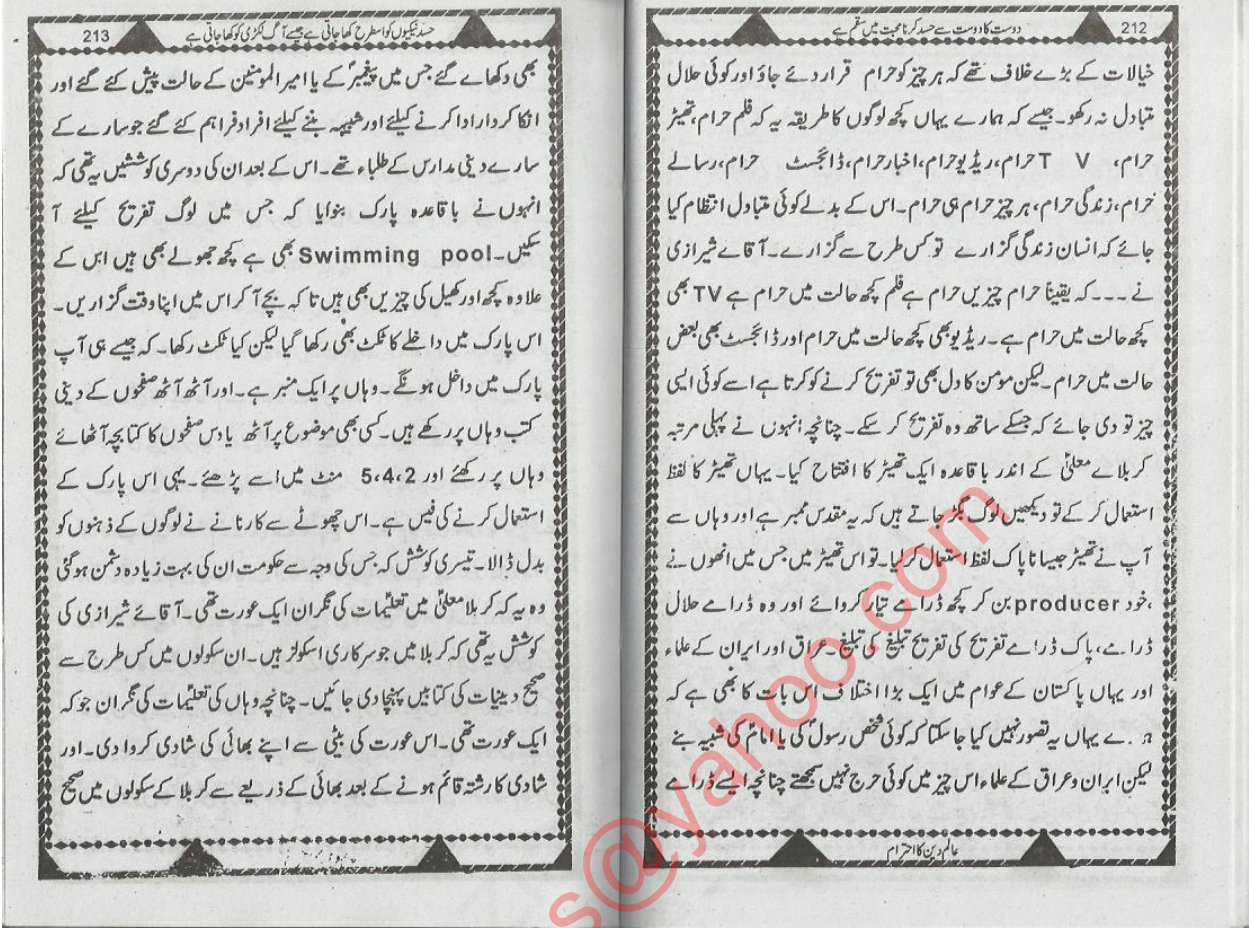 212
دوست کا دوست سے حسد کرنا محبت میں سقم ہے
خیالات کے بڑے خلاف تھے کہ ہر چیز کو حرام قرار دئے جاؤ اور کوئی حلال
متبادل نہ رکھو۔ جیسے کہ ہمارے یہاں کچھ لوگوں کا طریقہ یہ کہ فلم حرام، تھیٹر
حرام، T V حرام، ریڈیو حرام، اخبار حرام، ڈائجسٹ حرام، رسالے
حرام، زندگی حرام، ہر چیز حرام ہی حرام۔ اس کے بدلے کوئی متبادل انتظام کیا
جائے کہ انسان زندگی گزارے تو کس طرح سے گزارے۔ آقاے شیرازی
نے ۔۔۔ کہ یقیناً حرام چیزیں حرام ہے فلم کچھ حالت میں حرام ہے TV بھی
کچھ حالت میں حرام ہے۔ ریڈیو بھی کچھ حالت میں حرام اور ڈائجسٹ بھی بعض
حالت میں حرام۔ لیکن مومن کا دل بھی تو تفریح کرنے کو کرتا ہے اسے کوئی ایسی
چیز تو دی جائے کہ جسکے ساتھ وہ تفریح کر سکے۔ چنانچہ انہوں نے پہلی مرتبہ
کربلاے معلیٰ کے اندر باقاعدہ ایک تھیٹر کا افتتاح کیا۔ یہاں تھیٹر کا لفظ
استعمال کر کے تو دیکھیں لوگ بگڑ جاتے ہیں کہ یہ مقدس ممبر ہے اور وہاں سے
آپ نے تھیٹر جیسا ناپاک لفظ استعمال کر لیا۔ تو اس تھیٹر میں جس میں انھوں نے
،خود producer بن کر کچھ ڈرامے تیار کروائے اور وہ ڈرامے حلال
ڈرامے، پاک ڈرامے تفریح کی تفریح تبلیغ کی تبلیغ۔ عراق اور ایران کے علماء
اور یہاں پاکستان کے عوام میں ایک بڑا اختلاف اس بات کا بھی ہے کہ
ے یہاں یہ تصور نہیں کیا جا سکتا کہ کوئی شخص رسولؐ کی یا امامؑ کی شبیہ بنے
لیکن ایران و عراق کے علماء اس چیز میں کوئی حرج نہیں سمجھتے چنانچہ ایسے ڈرامے
عالم دین کا احترام
213
حسد نیکیوں کو اسطرح کھا جاتی ہے جیسے آگ لکڑی کو کھا جاتی ہے
بھی دکھاے گئے جس میں پیغمبرؐ کے یا امیر المومنین کے حالت پیش کئے گئے اور
انکا کردار ادا کرنے کیلئے اور شبیہہ بننے کیلئے افراد فراہم کئے گئے جو سارے کے
سارے دینی مدارس کے طلباء تھے۔ اس کے بعد ان کی دوسری کوششیں یہ تھی کہ
انہوں نے باقاعدہ پارک بنوایا کہ جس میں لوگ تفریح کیلئے آ
سکیں۔ Swimming pool بھی ہے کچھ جھولے بھی ہیں اس کے
علاوہ کچھ اور کھیل کی چیزیں بھی ہیں تا کہ بچے آ کر اس میں اپنا وقت گزاریں۔
اس پارک میں داخلے کا ٹکٹ بھی رکھا گیا لیکن کیا ٹکٹ رکھا۔ کہ جیسے ہی آپ
پارک میں داخل ہونگے۔ وہاں پر ایک منبر ہے۔ اور آٹھ آٹھ صفحوں کے دینی
کتب وہاں پر رکھے ہیں۔ کسی بھی موضوع پر آٹھ یا دس صفحوں کا کتابچہ آٹھائے
وہاں پر رکھئے اور 5،4،2 منٹ میں اسے پڑھئے۔ یہی اس پارک کے
استعمال کرنے کی فیس ہے۔ اس چھوٹے سے کارنانے نے لوگوں کے ذہنوں کو
بدل ڈالا۔ تیسری کوشش کہ جس کی وجہ سے حکومت ان کی بہت زیادہ دشمن ہو گئی
وہ یہ کہ کربلا معلیٰ میں تعلیمات کی نگران ایک عورت تھی۔ آقائے شیرازی کی
کوشش یہ تھی کہ کربلا میں جو سرکاری اسکولز ہیں۔ ان سکولوں میں کس طرح سے
صحیح دینیات کی کتابیں پہنچا دی جائیں۔ چنانچہ وہاں کی تعلیمات کی نگران جو کہ
ایک عورت تھی۔ اس عورت کی بیٹی سے اپنے بھائی کی شادی کروا دی۔ اور
شادی کا رشتہ قائم ہونے کے بعد بھائی کے ذریعے سے کربلا کے سکولوں میں صحیح
s@yahoo.com